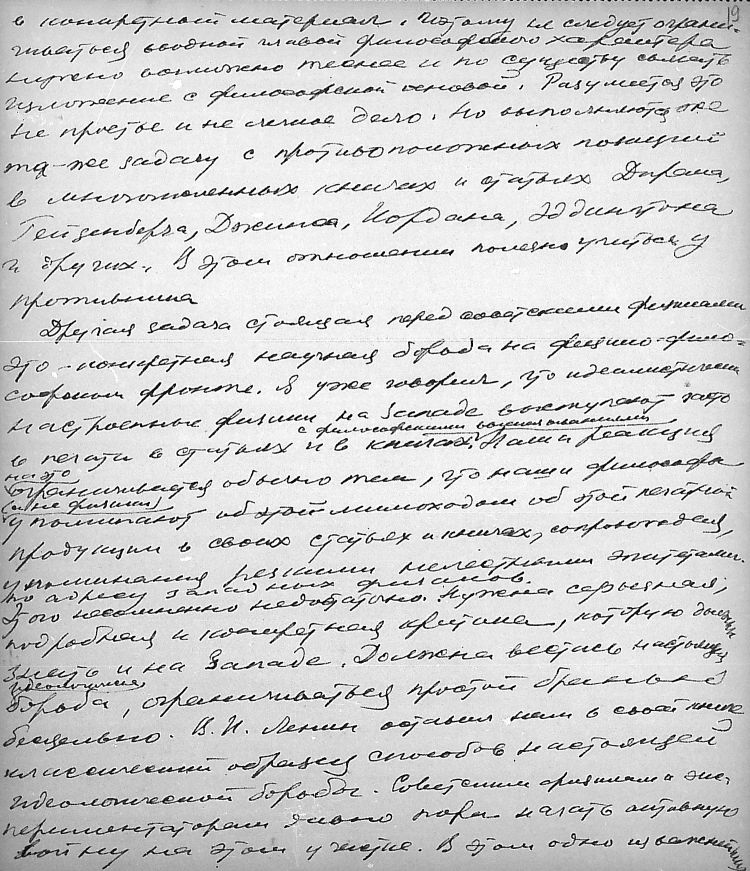 19
в конкретный материал. Поэтому не следует ограни-
чиваться вводной главой философского характера
нужно возможно теснее и по существу связать
изложение с философской основой. Разумеется это
не простое и не легкое дело. Но выполняются же
ту-же задачу с противоположных позиций
в многочисленных книгах и статьях Дирака,
Гейзенберга, Джинса, Иордана, Эддингтона
и других. В этом отношении полезно учиться у
противника
Другая задача стоящая перед советскими физиками
это - конкретная научная борьба на физико-фило-
софском фронте. Я уже говорил, что идеалистически
настроенные физики на Западе выступают часто
с философскими высказываниями
в печати в статьях и в книгах. Наша реакция
на это
ограничивается обычно тем, что наши философы
(и не физики)
упоминают об этой мимоходом об этой печатной
продукции в своих статьях и книгах, сопровождая,
упоминания резкими нелестными эпитетами
по адресу западных физиков.
Этого несомненно недостаточно. Нужна серьезная,
подробная и конкретная критика, которую должны
знать и на Западе. Должна вестись настоящая
идеологическая
борьба, ограничиваться простой бранью
бесцельно. В.И. Ленин оставил нам в своей книге
классический образец способов настоящей
идеологической борьбы. Советским физикам и экс-
периментаторам явно пора начать активную
войну на этом участке. В этом одно из важнейших